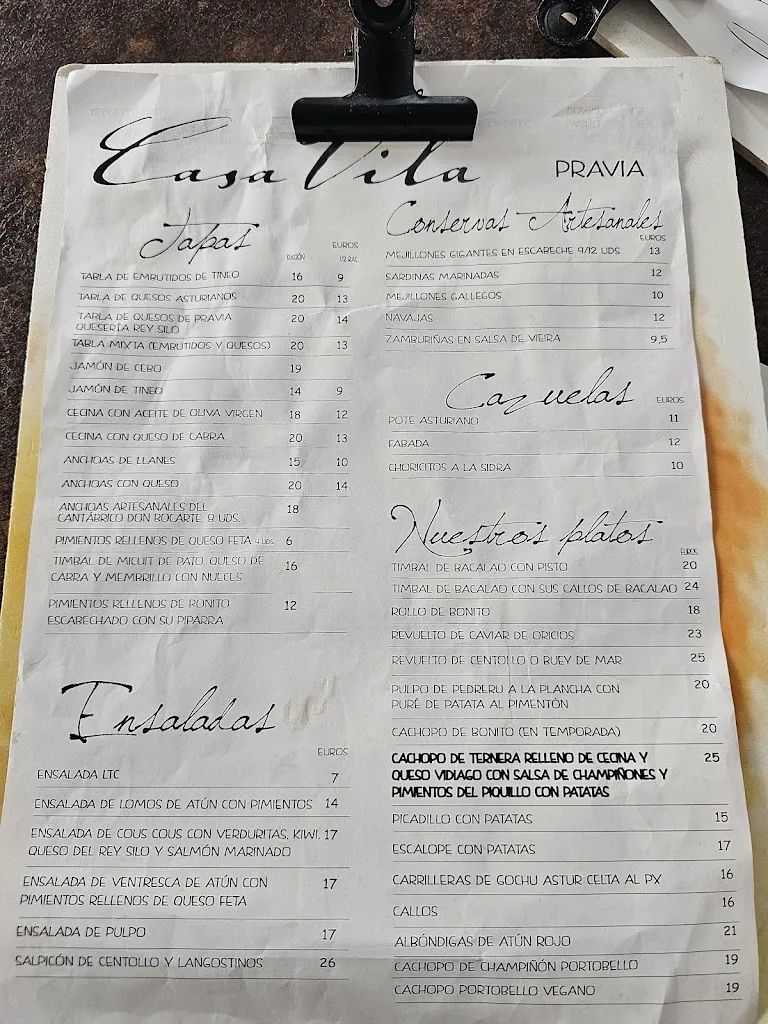 Casa Vila
PRAVIA
Tapas
EUROS
RACIÓN 1/2 RAC
TABLA DE EMBUTIDOS DE TINEO 16 9
TABLA DE QUESOS ASTURIANOS 20 13
TABLA DE QUESOS DE PRAVIA 20 14
QUESERÍA REY SILO
TABLA MIXTA (EMBUTIDOS Y QUESOS) 20 13
JAMÓN DE CEBO 19
JAMÓN DE TINEO 14 9
CECINA CON ACEITE DE OLIVA VIRGEN 18 12
CECINA CON QUESO DE CABRA 20 13
ANCHOAS DE LLANES 15 10
ANCHOAS CON QUESO 20 14
ANCHOAS ARTESANALES DEL 18
CANTÁBRICO DON BOCARTE. 8 UDS.
PIMIENTOS RELLENOS DE QUESO FETA 4 UDS. 6
TIMBAL DE MICUIT DE PATO, QUESO DE 16
CABRA Y MEMBRILLO CON NUECES
PIMIENTOS RELLENOS DE BONITO 12
ESCABECHADO CON SU PIPARRA
Ensaladas
EUROS
ENSALADA LTC 7
ENSALADA DE LOMOS DE ATÚN CON PIMIENTOS 14
ENSALADA DE COUS COUS CON VERDURITAS, KIWI, 17
QUESO DEL REY SILO Y SALMÓN MARINADO
ENSALADA DE VENTRESCA DE ATÚN CON 17
PIMIENTOS RELLENOS DE QUESO FETA
ENSALADA DE PULPO 17
SALPICÓN DE CENTOLLO Y LANGOSTINOS 26
Conservas Artesanales
EUROS
MEJILLONES GIGANTES EN ESCABECHE 9/12 UDS 13
SARDINAS MARINADAS 12
MEJILLONES GALLEGOS 10
NAVAJAS 12
ZAMBURIÑAS EN SALSA DE VIEIRA 9,5
Cazuelas
EUROS
POTE ASTURIANO 11
FABADA 12
CHORICITOS A LA SIDRA 10
Nuestros platos
EUROS
TIMBAL DE BACALAO CON PISTO 20
TIMBAL DE BACALAO CON SUS CALLOS DE BACALAO 24
ROLLO DE BONITO 18
REVUELTO DE CAVIAR DE ORICIOS 23
REVUELTO DE CENTOLLO O BUEY DE MAR 25
PULPO DE PEDRERU A LA PLANCHA CON 20
PURÉ DE PATATA AL PIMENTÓN
CACHOPO DE BONITO (EN TEMPORADA) 20
CACHOPO DE TERNERA RELLENO DE CECINA Y 25
QUESO VIDIAGO CON SALSA DE CHAMPIÑONES Y
PIMIENTOS DEL PIQUILLO CON PATATAS
PICADILLO CON PATATAS 15
ESCALOPE CON PATATAS 17
CARRILLERAS DE GOCHU ASTUR CELTA AL PX 16
CALLOS 16
ALBÓNDIGAS DE ATÚN ROJO 21
CACHOPO DE CHAMPIÑÓN PORTOBELLO 19
CACHOPO PORTOBELLO VEGANO 19